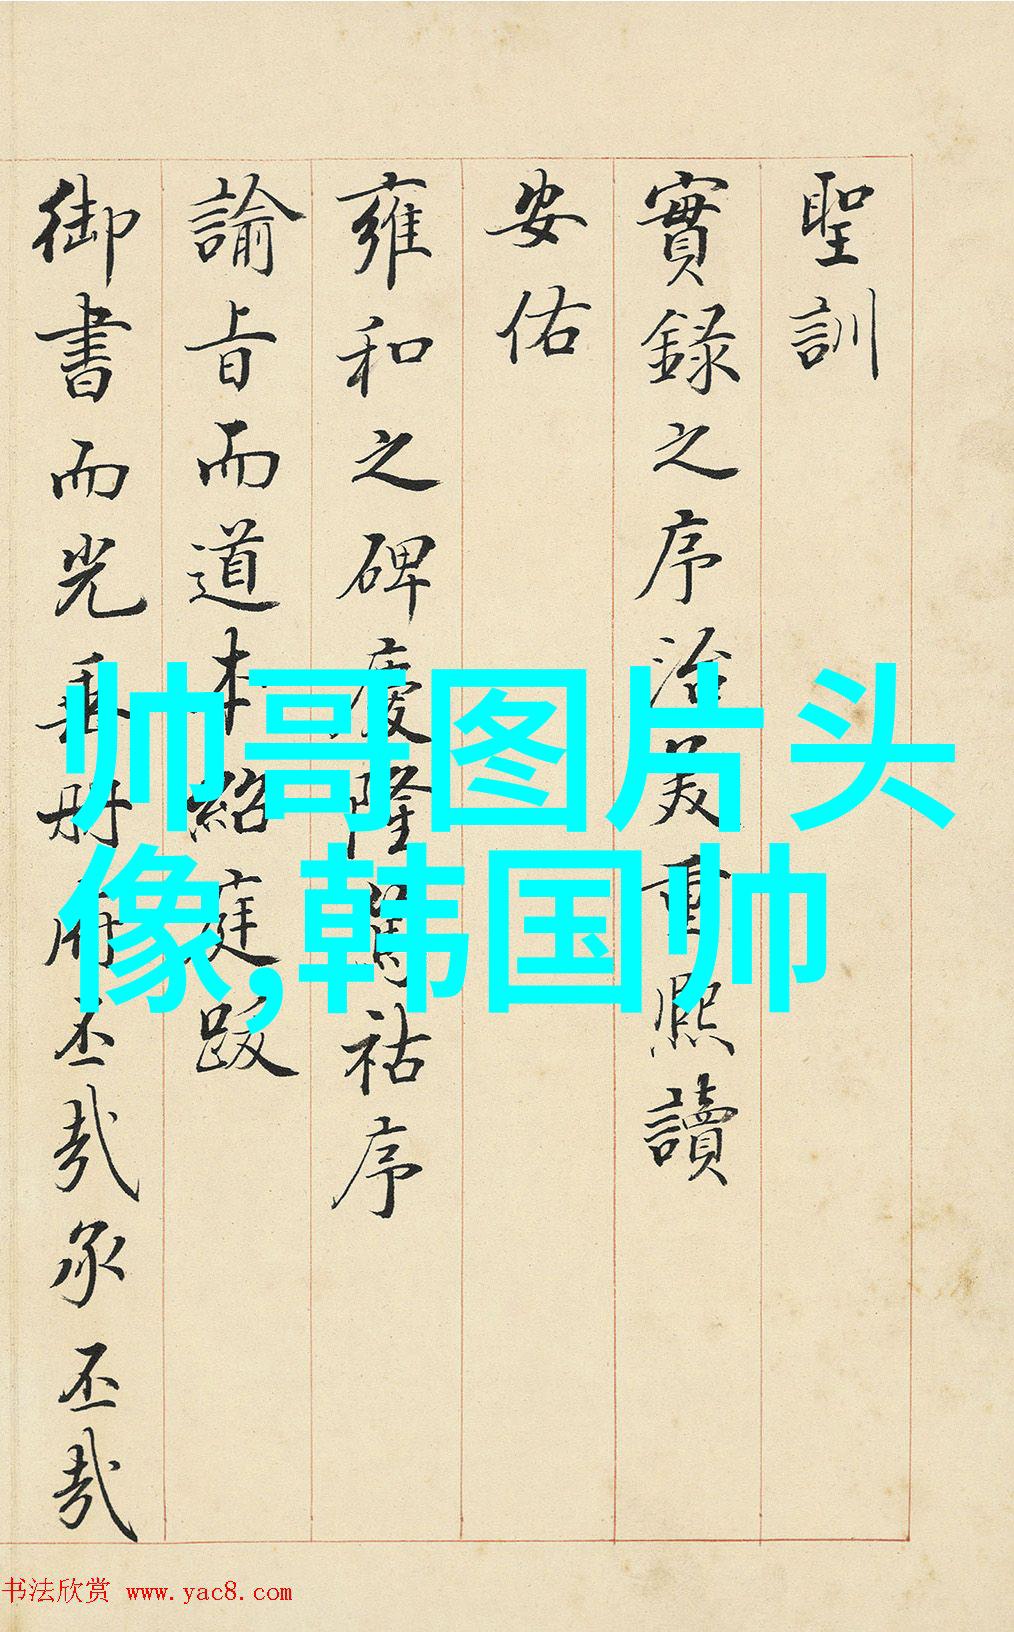 聖訓
實録之序治美重熙讀
安佑
雍和之碑慶隆篤祜序
諭旨而道本紹庭跋
御書而光垂册府丕哉承丕哉
帅哥图片头
像,韩国帅
书法欣赏 www.yac8.com